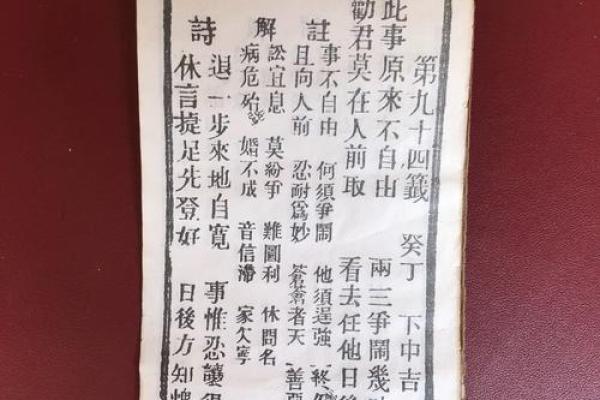 第九十四籤 癸丁 下中吉
此事原來不自由 兩三爭鬧幾
勸君莫在人前取 看去任他日後
註 事不自由 何須爭鬧 他須逞強 終
且向人前 忍耐爲妙 蒼蒼者天 善惡
解 訟宜息 莫紛爭 難圖利 休問名
病危殆 婚不成 音信滯 家欠寧
詩 退一步來地自寬 事惟忍讓
休言捷足先登好 日後方知